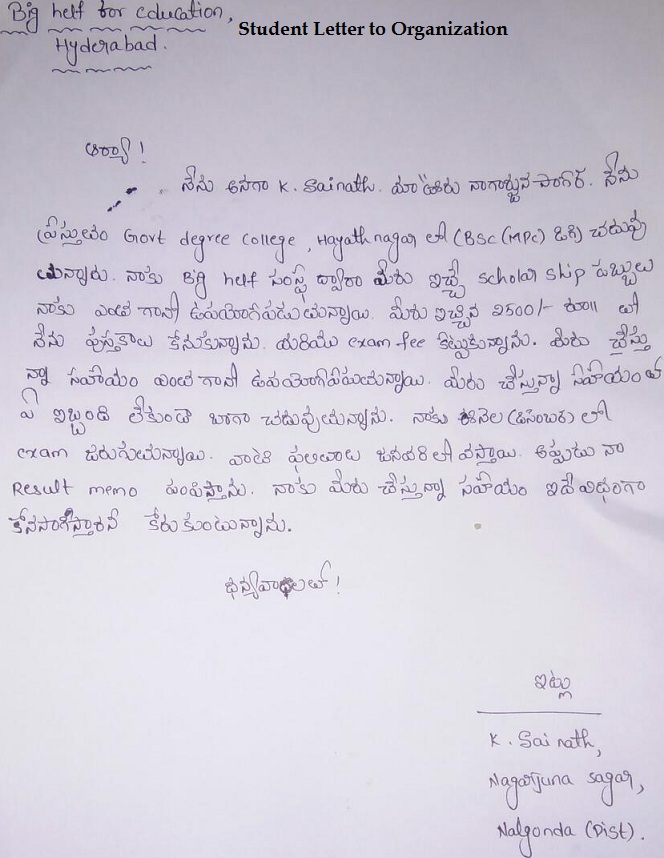 Big helf for education,
Student Letter to Organization
Hyderabad.
ఆర్యా!
నేను అనగా K. Sainath. మా ఊరు నాగార్జున సాగర్. నేను
ప్రస్తుతం Govt degree college, Hayathnagar లో (BSC (MPC) డిగ్రి) చదువు
తున్నాను. నాకు Big helf సంస్థ ద్వారా మీరు ఇచ్చే scholar ship డబ్బులు
నాకు ఎంత గానో ఉపయోగపడుతున్నాయి. మీరు ఇచ్చిన 2500/- రూ॥ లతో
నేను పుస్తకాలు కొనుకున్నాను. మరియు exam fee కట్టుకున్నాను. మీరు చేస్తు
న్నా సహాయం ఎంత గానో మీరు చేస్తున్నా సహాయంతో
ఏ ఇబ్బంది లేకుండా బాగా చదువుతున్నాను. నాకు ఈనెల (డిసెంబర) లో
exam జరుగుతున్నాయి. వాటి ఫలితాలు జనవరి లో వస్తాయి. అప్పుడు నా
Result memo పంపిస్తాను. నాకు మీరు చేస్తున్నా సహాయం ఇదే విధంగా
కొనసాగిస్తారని కోరుకుంటున్నాను.
ధన్యవాదాలతో!
ఇట్లు
K. Sai nath,
Nagarjuna sagar,
Nalgonda (Dist).